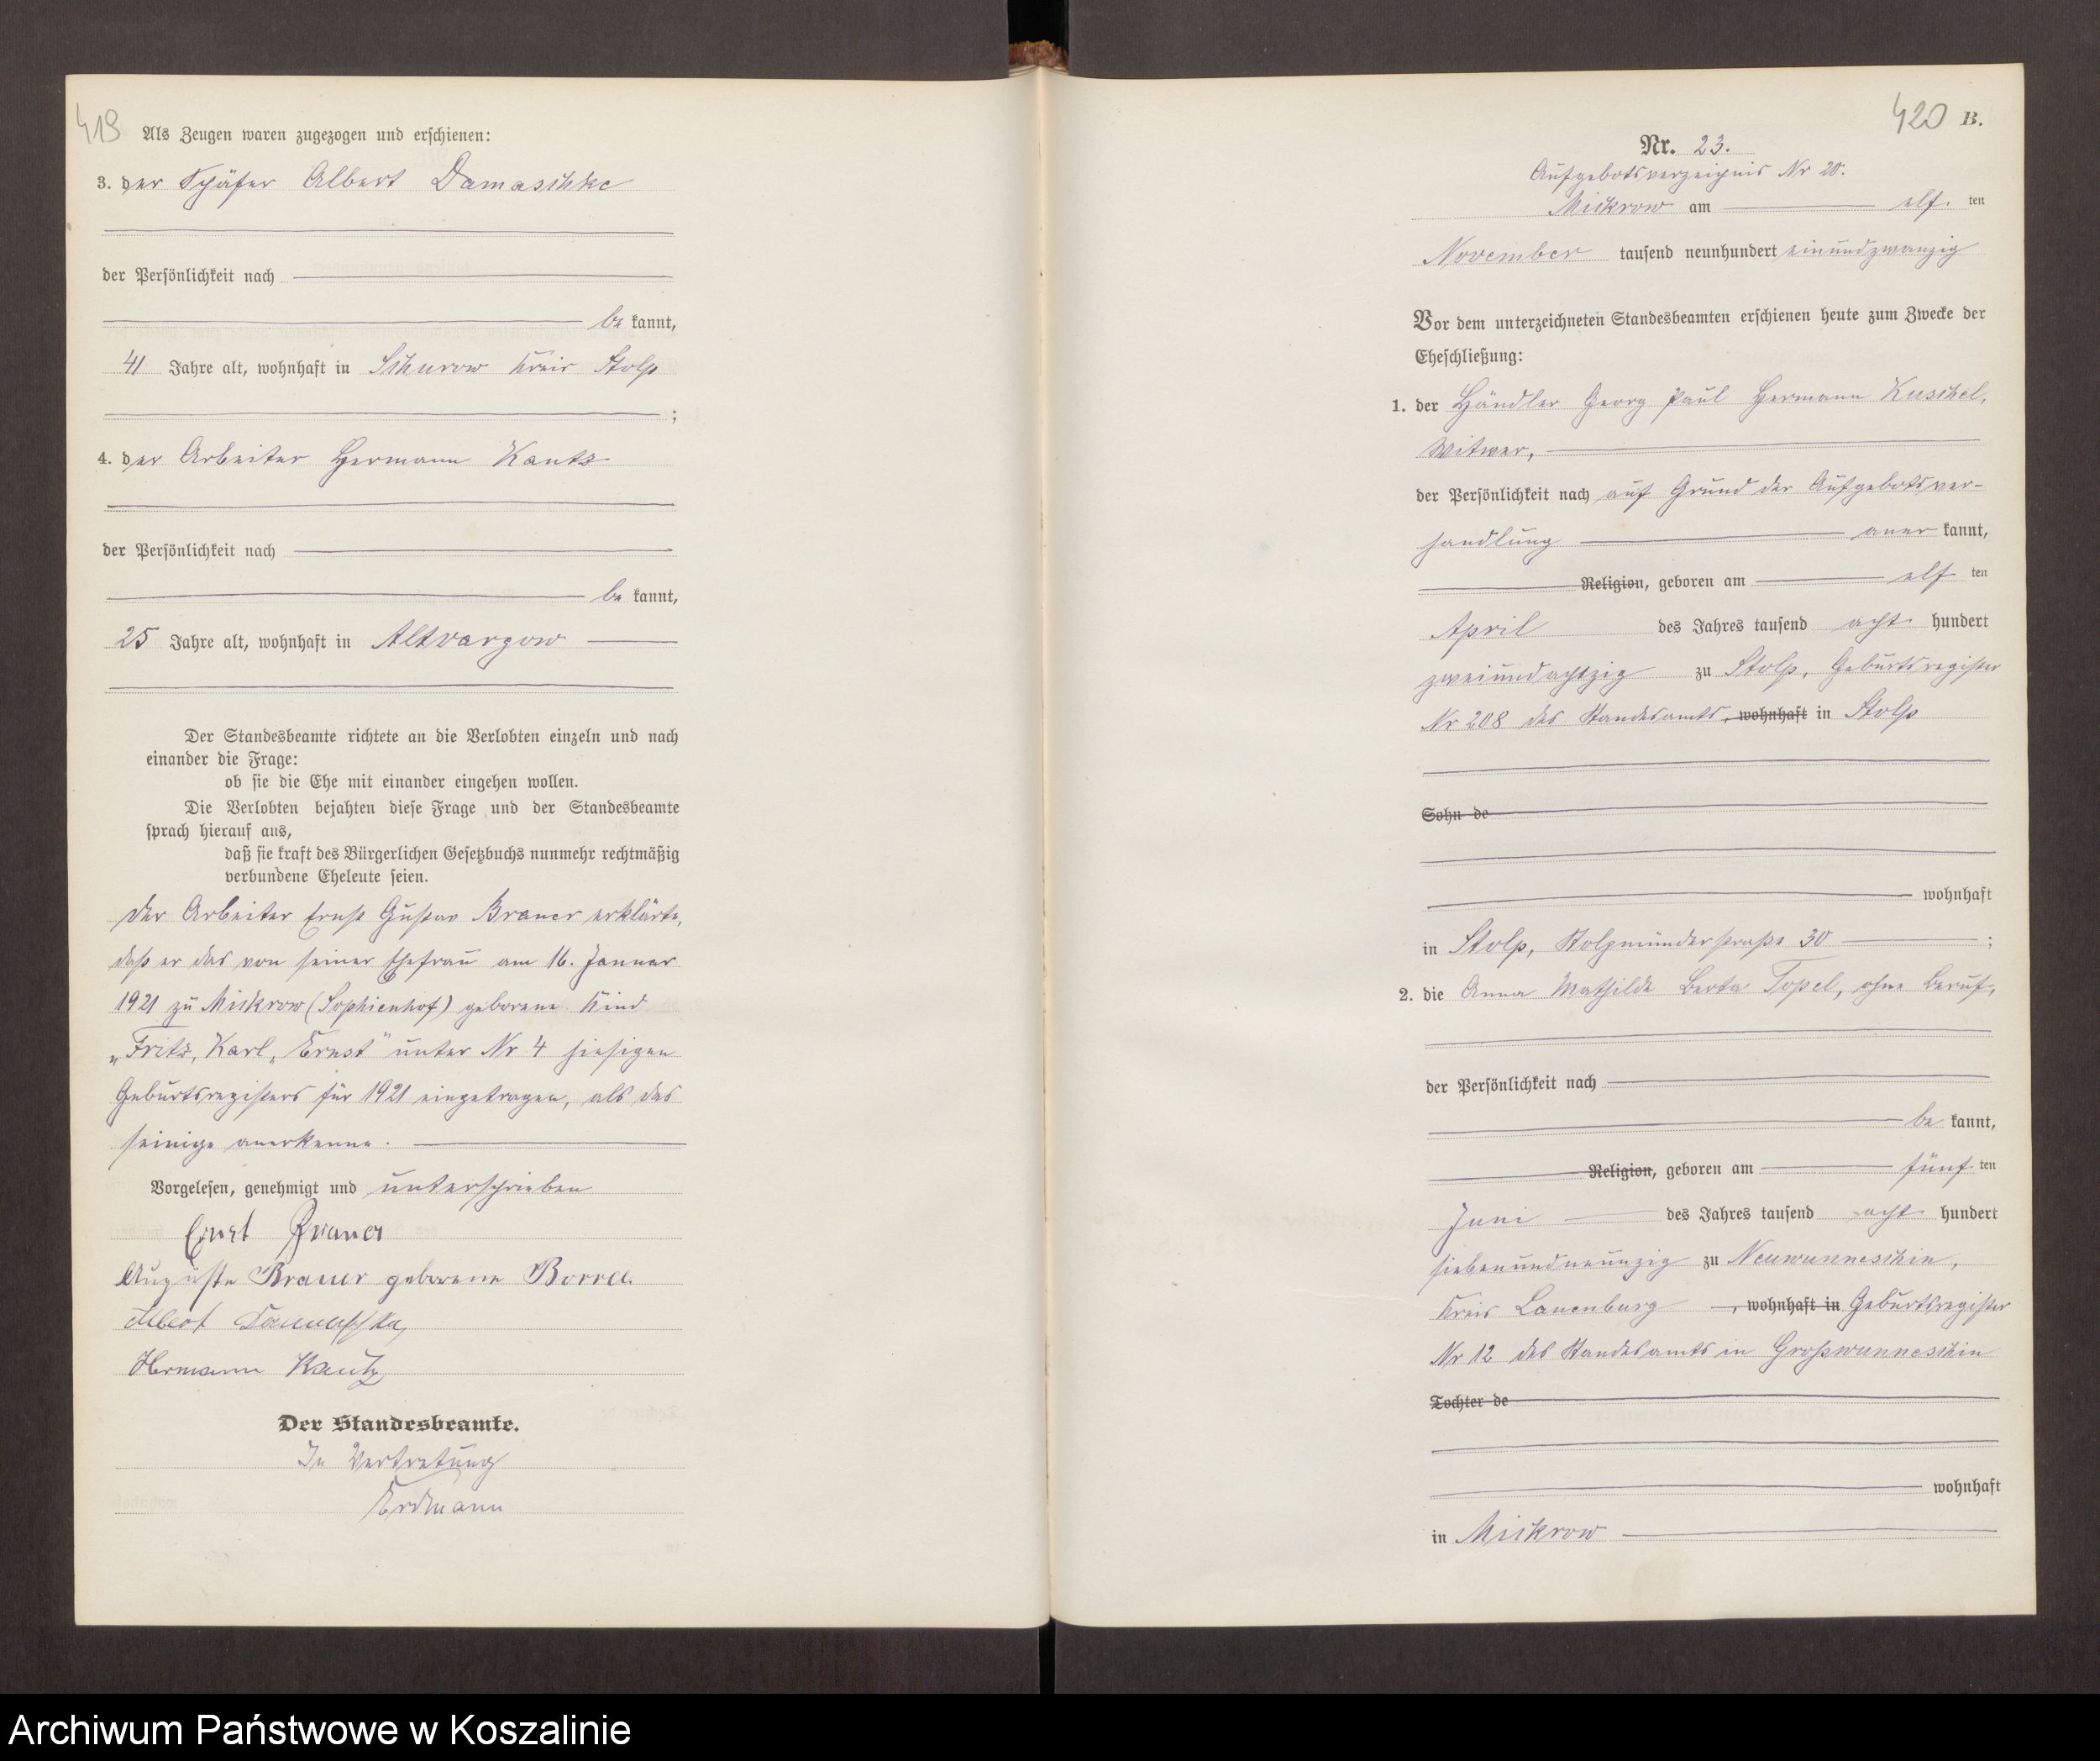 419
Als Zeugen waren zugezogen und erschienen:
3. der Schäfer Albert Damaschke
der Persönlichkeit nach
be kannt,
41 Jahre alt, wohnhaft in Schurow Kreis Stolp
;
4. der Arbeiter Hermann Kautz
der Persönlichkeit nach
be kannt,
25 Jahre alt, wohnhaft in Altvargow
Der Standesbeamte richtete an die Verlobten einzeln und nach
einander die Frage:
ob sie die Ehe mit einander eingehen wollen.
Die Verlobten bejahten diese Frage und der Standesbeamte
sprach hierauf aus,
daß sie kraft des Bürgerlichen Gesetzbuchs nunmehr rechtmäßig
verbundene Eheleute seien.
Der Arbeiter Ernst Gustav Brauer erklärte,
daß er das von seiner Ehefrau am 16. Januar
1921 zu Mickrow (Sophienhof) geborene Kind
„Fritz, Karl, Ernst" unter Nr 4 hiesigen
Geburtsregisters für 1921 eingetragen, als das
seinige anerkenne.
Vorgelesen, genehmigt und unterschrieben
Ernst Brauer
Auguste Brauer geborene
Albert Damaschke
Hermann Kautz
Der Standesbeamte.
In Vertretung
Erdmann
420 B.
Nr. 23.
Aufgebotsverzeichnis Nr 20.
Mickrow am elf. ten
November tausend neunhundert einundzwanzig
Vor dem unterzeichneten Standesbeamten erschienen heute zum Zwecke der
Eheschließung:
1. der Händler Georg Paul Hermann Kuschel,
Witwer,
der Persönlichkeit nach auf Grund der Aufgebotsver-
handlung aner kannt,
Religion, geboren am elf ten
April des Jahres tausend acht hundert
zweiundachtzig zu Stolp, Geburtsregister
Nr 208 des Standesamts, wohnhaft in Stolp
Sohn de
wohnhaft
in Stolp, Stolpmünderstraße 30 ;
2. die Anna Mathilde Berta Topel, ohne Beruf,
der Persönlichkeit nach
be kannt,
Religion, geboren am fünf ten
Juni des Jahres tausend acht hundert
siebenundneunzig zu Neuwunneschin,
Kreis Lauenburg , wohnhaft in Geburtsregister
Nr 12 des Standesamts in Großwunneschin
Tochter de
wohnhaft
in Mickrow
Archiwum Państwowe w Koszalinie